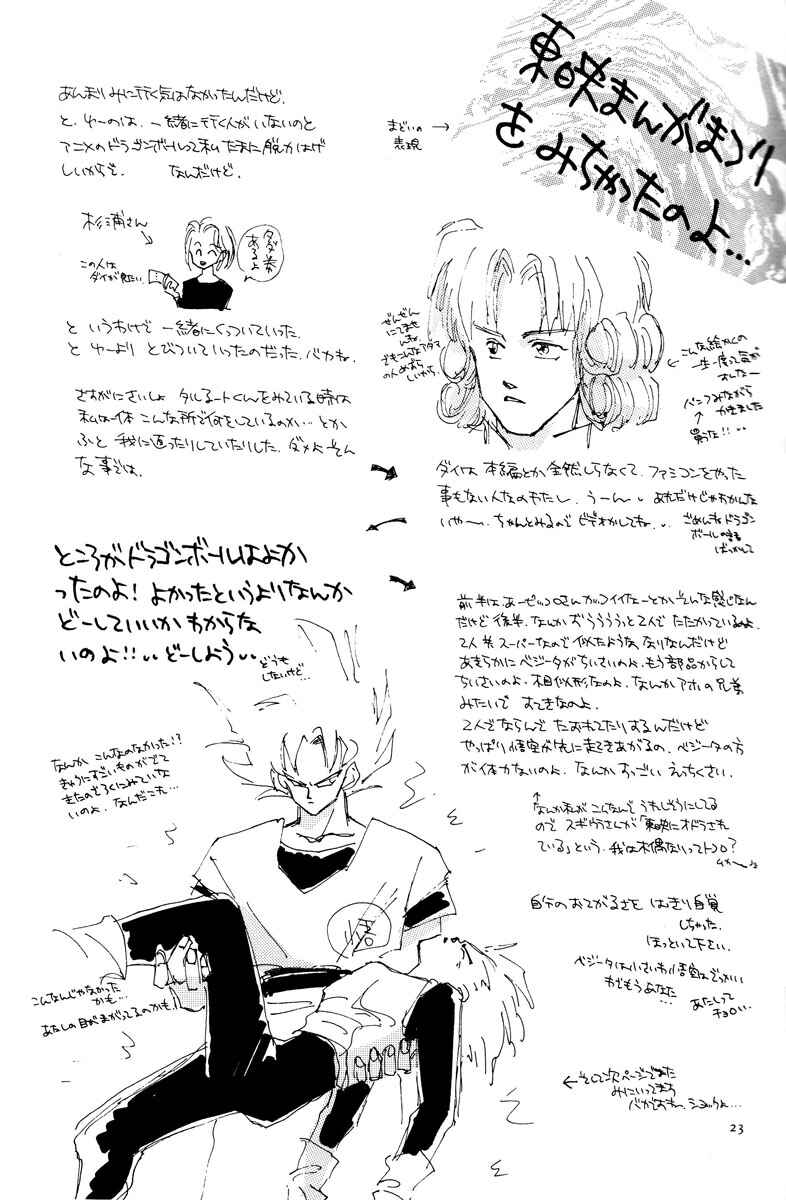 東映まんがまつり
をみちゃったのよ…
まどいの
表現
→
あんまりみに行く気はなかったんだけど、
と、ゆーのは、一緒に行く人がいないのと
アニメのドラゴンボールって私たまに脱力はげ
しいからを。 なんだけど。
杉浦さん
この人は
ダイが見たい
タダ券
あるよ
と いうわけで 一緒にくっついていった。
と ゆーより とびついていったのだった。バカね。
さすがにさいしょ タルるートくんをみている時は
私は一体 こんな所で何をしているのか…とか
ふと 我に返ったりしていたりした。ダメよ そん
な事では。
ぜんぜん
にてませ
んね。
← こんな絵かくの
一生一度って気が
パンフみながら
かきました
↑
買った!!
ダイは 本編とか全然しらなくて、ファミコンをやった
事もない人なのでわたし、うーん、あれだけじゃわかんな
いやー、ちゃんとみるのでビデオかしてね。
ごめんねドラゴン
ボールの時も
ところがドラゴンボールはよか
ったのよ! よかったというよりなんか
どーしていいか わからな
いのよ!! どーしよう
どうも
したいけど…
前半は、あーピッコロさんがコワイなーとかそんな感じなん
だけど 後半、なんか ずううううっと2人で たたかっているのよ。
2人共 スーパーなので 似たような なりなんだけど
あきらかに ベジータがちいさいのよ。もう部品からして
ちいさいのよ。相似形なのよ。なんか アホの兄弟
みたいで すてきなのよ。
2人でならんで たおれてたりするんだけど
やっぱり悟空が先に起きあがるの。ベジータの方
が体力ないのよ。なんか すっごい えっちくさい。
↑
なんか私が こんなんで うれしそうにしてる
ので スギウラさんが「東映にオドらされ
ている」という。我は木偶ないってトコロ?
なんか こんなのなかった!?
きゅうにすごいものがでて
きたのでろくにみていな
いのよ。なんだこれ…
自分のおてがるさを はっきり自覚
しちゃった。
ほっといて下さい。
ベジータは小さいわ悟空はでっかい
わでもうあなた…
あたしって
チョロい…
こんなんじゃなかった
かも…
あたしの目がまがってるのかも
← そして次ページでまた
みにいってまう
バカですねっ、ショックよ…
23